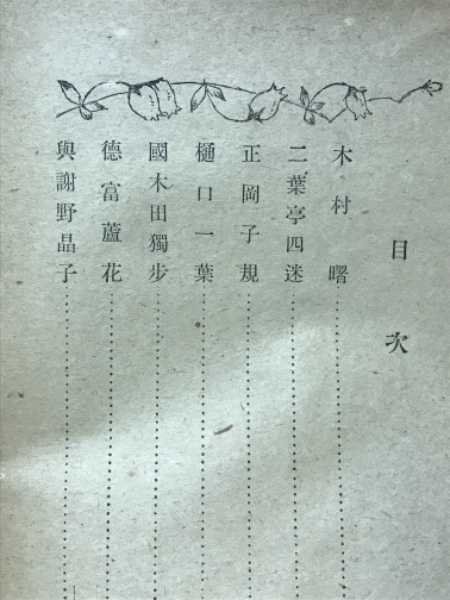 目次
木村曙
二葉亭四迷
正岡子規
樋口一葉
國木田獨步
德富蘆花
與謝野晶子